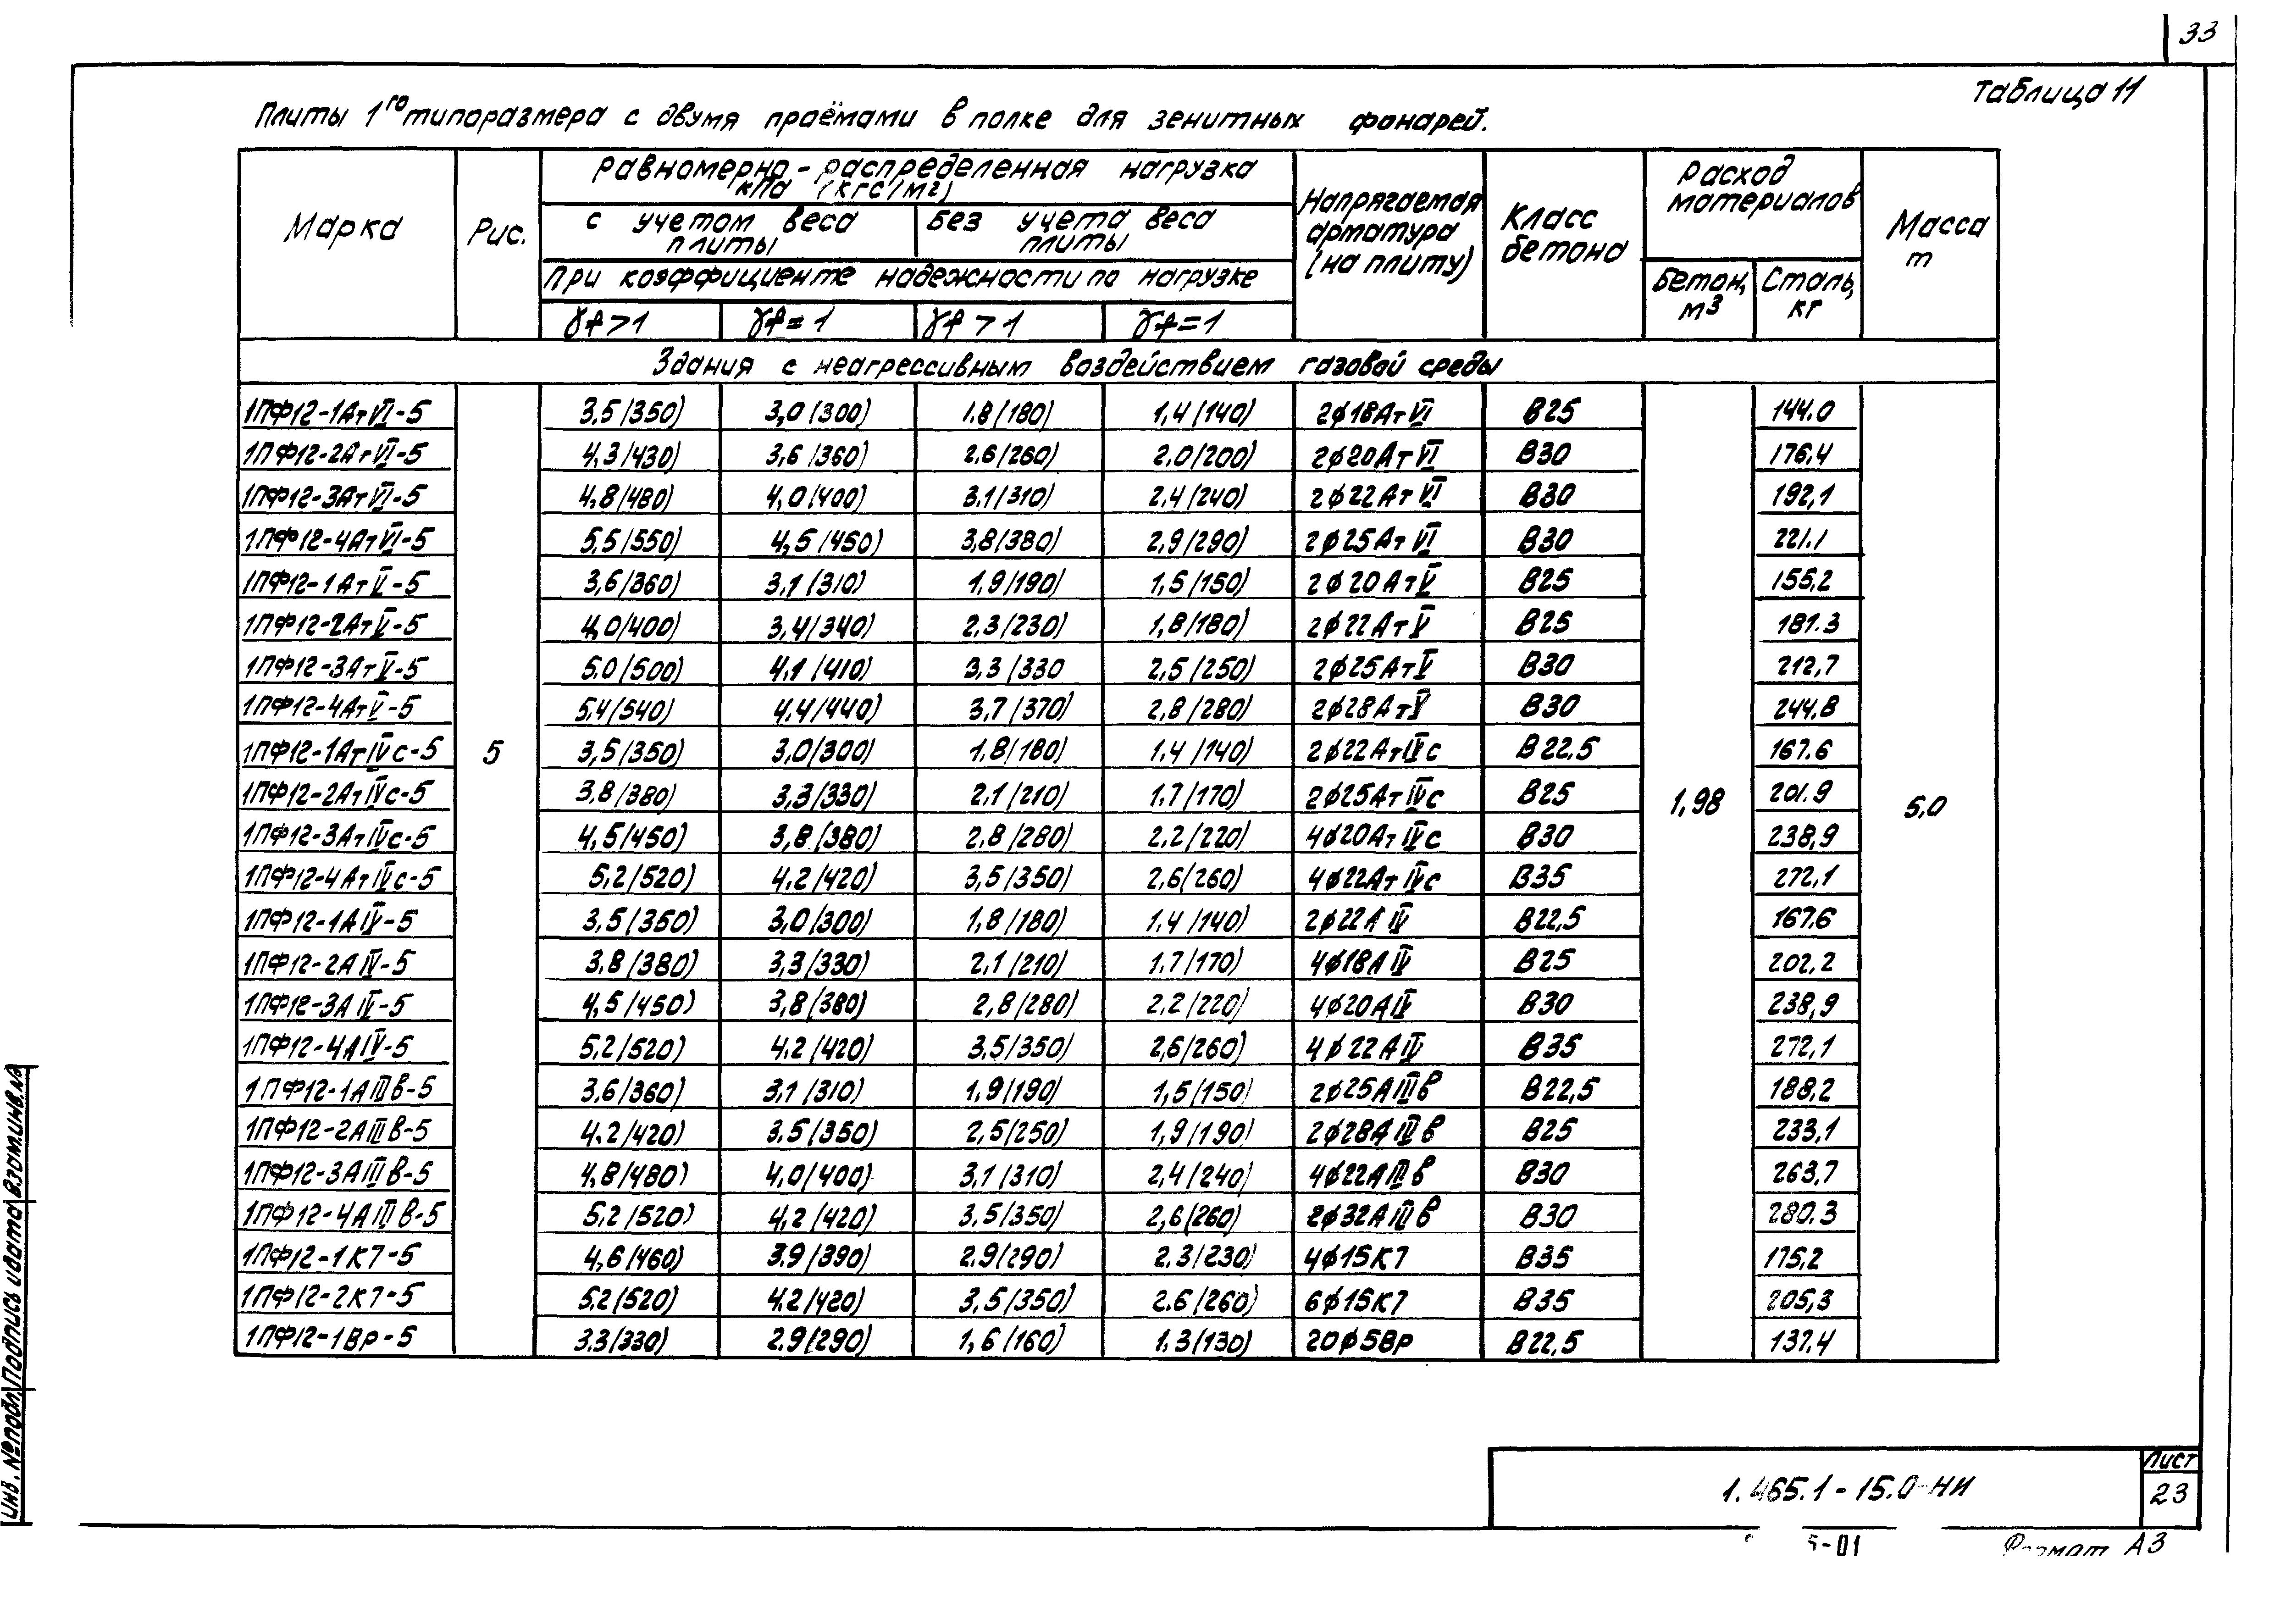 33
Таблица 11
Плиты 1го типоразмера с двумя праёмами в полке для зенитных фонарей.
Марка
Рис.
Равномерно-распределенная нагрузка
кПа (кгс/м2)
с учетом веса плиты
Без учета веса плиты
При коэффициенте надежности по нагрузке
γf>1 γf=1 γf>1 γf=1
Напрягаемая арматура (на плиту)
Класс бетона
Расход материалов
Бетон, м3
Сталь, кг
Масса т
Здания с неагрессивным воздействием газовой среды
1ПФ12-1АтVI-5 3,5(350) 3,0(300) 1.8(180) 1,4(140) 2ϕ18АтVI В25 144.0
1ПФ12-2АтVI-5 4,3(430) 3,6(360) 2.6(260) 2.0(200) 2ϕ20АтVI В30 176,4
1ПФ12-3АтVI-5 4,8(480) 4,0(400) 3.1(310) 2.4(240) 2ϕ22АтVI В30 192,1
1ПФ12-4АтVI-5 5,5(550) 4,5(450) 3,8(380) 2,9(290) 2ϕ25АтVI В30 221.1
1ПФ12-1АтV-5 3,6(360) 3,1(310) 1,9(190) 1,5(150) 2ϕ20АтV В25 155.2
1ПФ12-2АтV-5 4,0(400) 3,4(340) 2,3(230) 1,8(180) 2ϕ22АтV В25 181.3
1ПФ12-3АтV-5 5,0(500) 4,1(410) 3,3(330 2,5(250) 2ϕ25АтV В30 212,7
1ПФ12-4АтV-5 5,4(540) 4,4(440) 3,7(370) 2,8(280) 2ϕ28АтV В30 244.8
1ПФ12-1АтIVс-5 5 3,5(350) 3,0(300) 1,8(180) 1,4(140) 2ϕ22АтIVс В22,5 167.6
1ПФ12-2АтIVс-5 3,8(380) 3,3(330) 2,1(210) 1,7(170) 2ϕ25АтIVс В25 1,98 201.9 5,0
1ПФ12-3АтIVс-5 4,5(450) 3,8(380) 2,8(280) 2,2(220) 4ϕ20АтIVс В30 238,9
1ПФ12-4АтIVс-5 5,2(520) 4,2(420) 3,5(350) 2,6(260) 4ϕ22АтIVс В35 272,1
1ПФ12-1АIV-5 3,5(350) 3,0(300) 1,8(180) 1,4(140) 2ϕ22АIV В22,5 167.6
1ПФ12-2АIV-5 3,8(380) 3,3(330) 2,1(210) 1,7(170) 4ϕ18АIV В25 202,2
1ПФ12-3АIV-5 4,5(450) 3,8(380) 2,8(280) 2,2(220) 4ϕ20АIV В30 238,9
1ПФ12-4АIV-5 5,2(520) 4,2(420) 3,5(350) 2,6(260) 4ϕ22АIV В35 272,1
1ПФ12-1АIIIв-5 3,6(360) 3,1(310) 1,9(190) 1,5(150) 2ϕ25АIIIв В22,5 188,2
1ПФ12-2АIIIв-5 4.2(420) 3,5(350) 2,5(250) 1,9(190) 2ϕ28АIIIв В25 233,1
1ПФ12-3АIIIв-5 4,8(480) 4,0(400) 3,1(310) 2,4(240) 4ϕ22АIIIв В30 263,7
1ПФ12-4АIIIв-5 5,2(520) 4,2(420) 3,5(350) 2,6(260) 2ϕ32АIIIв В30 280.3
1ПФ12-1К7-5 4,6(460) 3.9(390) 2.9(290) 2.3(230) 4ϕ15К7 В35 175,2
1ПФ12-2К7-5 5,2(520) 4.2(420) 3,5(350) 2.6(260) 6ϕ15К7 В35 205,3
1ПФ12-1Вр-5 3.3(330) 2.9(290) 1,6(160) 1.3(130) 20ϕ5Вр В22,5 137.4
Инв. № подл. Подпись и дата Взам.инв.№
1.465.1-15.0-НИ
Лист
23
5-01
Формат А3